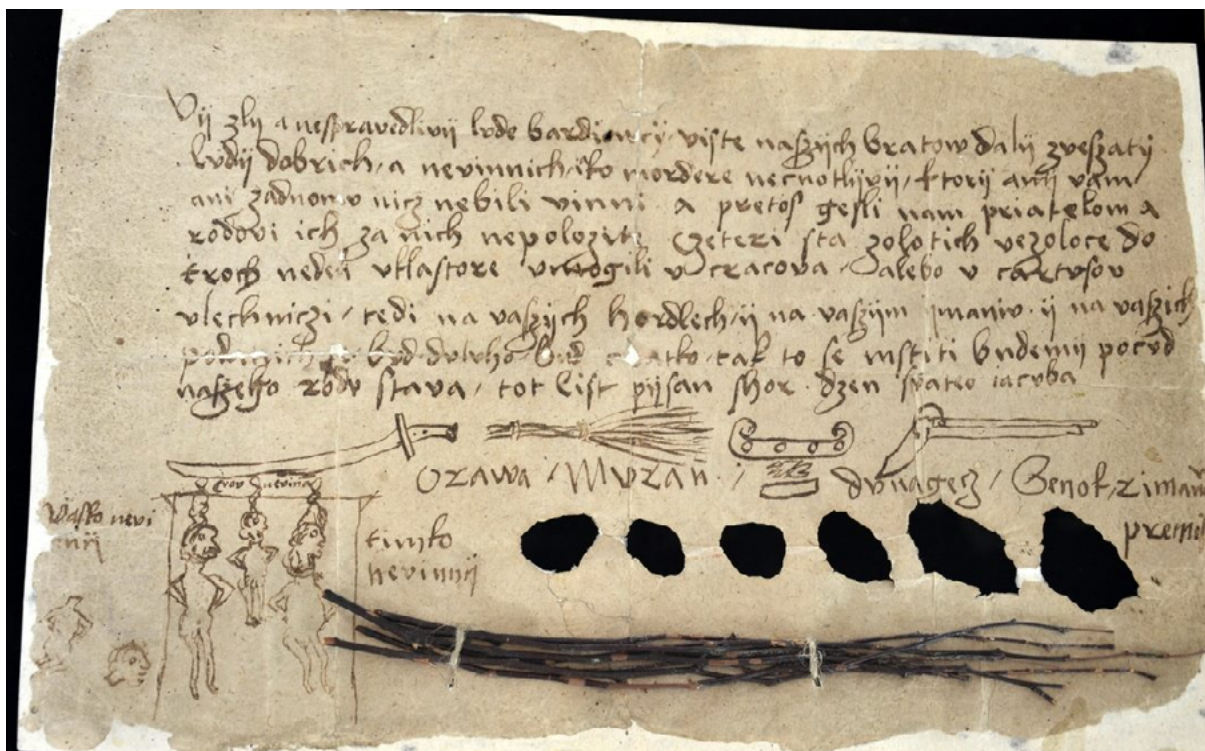 Vij zlij a nespravedlivij lvde bardiowcij, vijste naszijch bratow dalij zveszatij
lvdij dobrich, a nevinnich iko mordere necnotlijvij, ktorij anij vam
ani zadnomv nicz nebili vinni. a pretos gesli nam priatelom a
rodovi ich za nich nepolozite czeteri sta zolotich vezoloce do
troch nedeli vklastore vmogili v cracova, alebo v cartvsov
vlechniczi, tedi na vaszijch hordlech, ij na vaszijm imaniv. ij na vaszich
bvd dvlvho, bvd tak to se mstiti bvdemij pocvd
naszeho rodv stava, tot list pijsan shor. dzen svateo iacvba
Orawa / Mvran / dvnagecz / Senok, riman
premi
Wasko nevi
nnij
timko
nevinnij